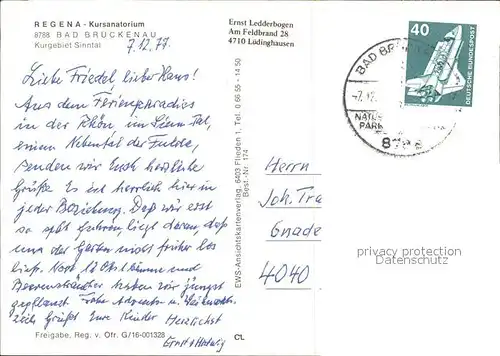 REGENA - Kursanatorium
8788 BAD BRÜCKENAU
Kurgebiet Sinntal
7.12.77
Ernst Ledderbogen
Am Feldbrand 28
4710 Lüdinghausen
40
DEUTSCHE BUNDESPOST
BAD BRÜ
-7.12.
NATUR
PARK
878
Liebe Friedel, lieber Hans!
Aus dem Ferienparadies
in der Rhön, im Sinn-Tal,
einem Nebental der Fulda,
senden wir Euch herzliche
Grüße. Es ist herrlich hier in
jeder Beziehung. Daß wir erst
so spät fuhren, liegt daran, daß
uns der Garten nicht früher los
ließ. Noch 12 Obstbäume und
Beerensträucher haben wir jüngst
gepflanzt. Frohe Advents- u. Weihnachts-
zeit! Grüßt Eure Kinder Herzlichst
Ernst + Hedwig
Herrn
Joh. Tra
Gnade
4040
privacy protection
Datenschutz
EWS-Ansichtskartenverlag, 6403 Flieden 1, Tel. 0 66 55 - 14 50
Best.-Nr. 174
Freigabe, Reg. v. Ofr. G/16-001328
CL